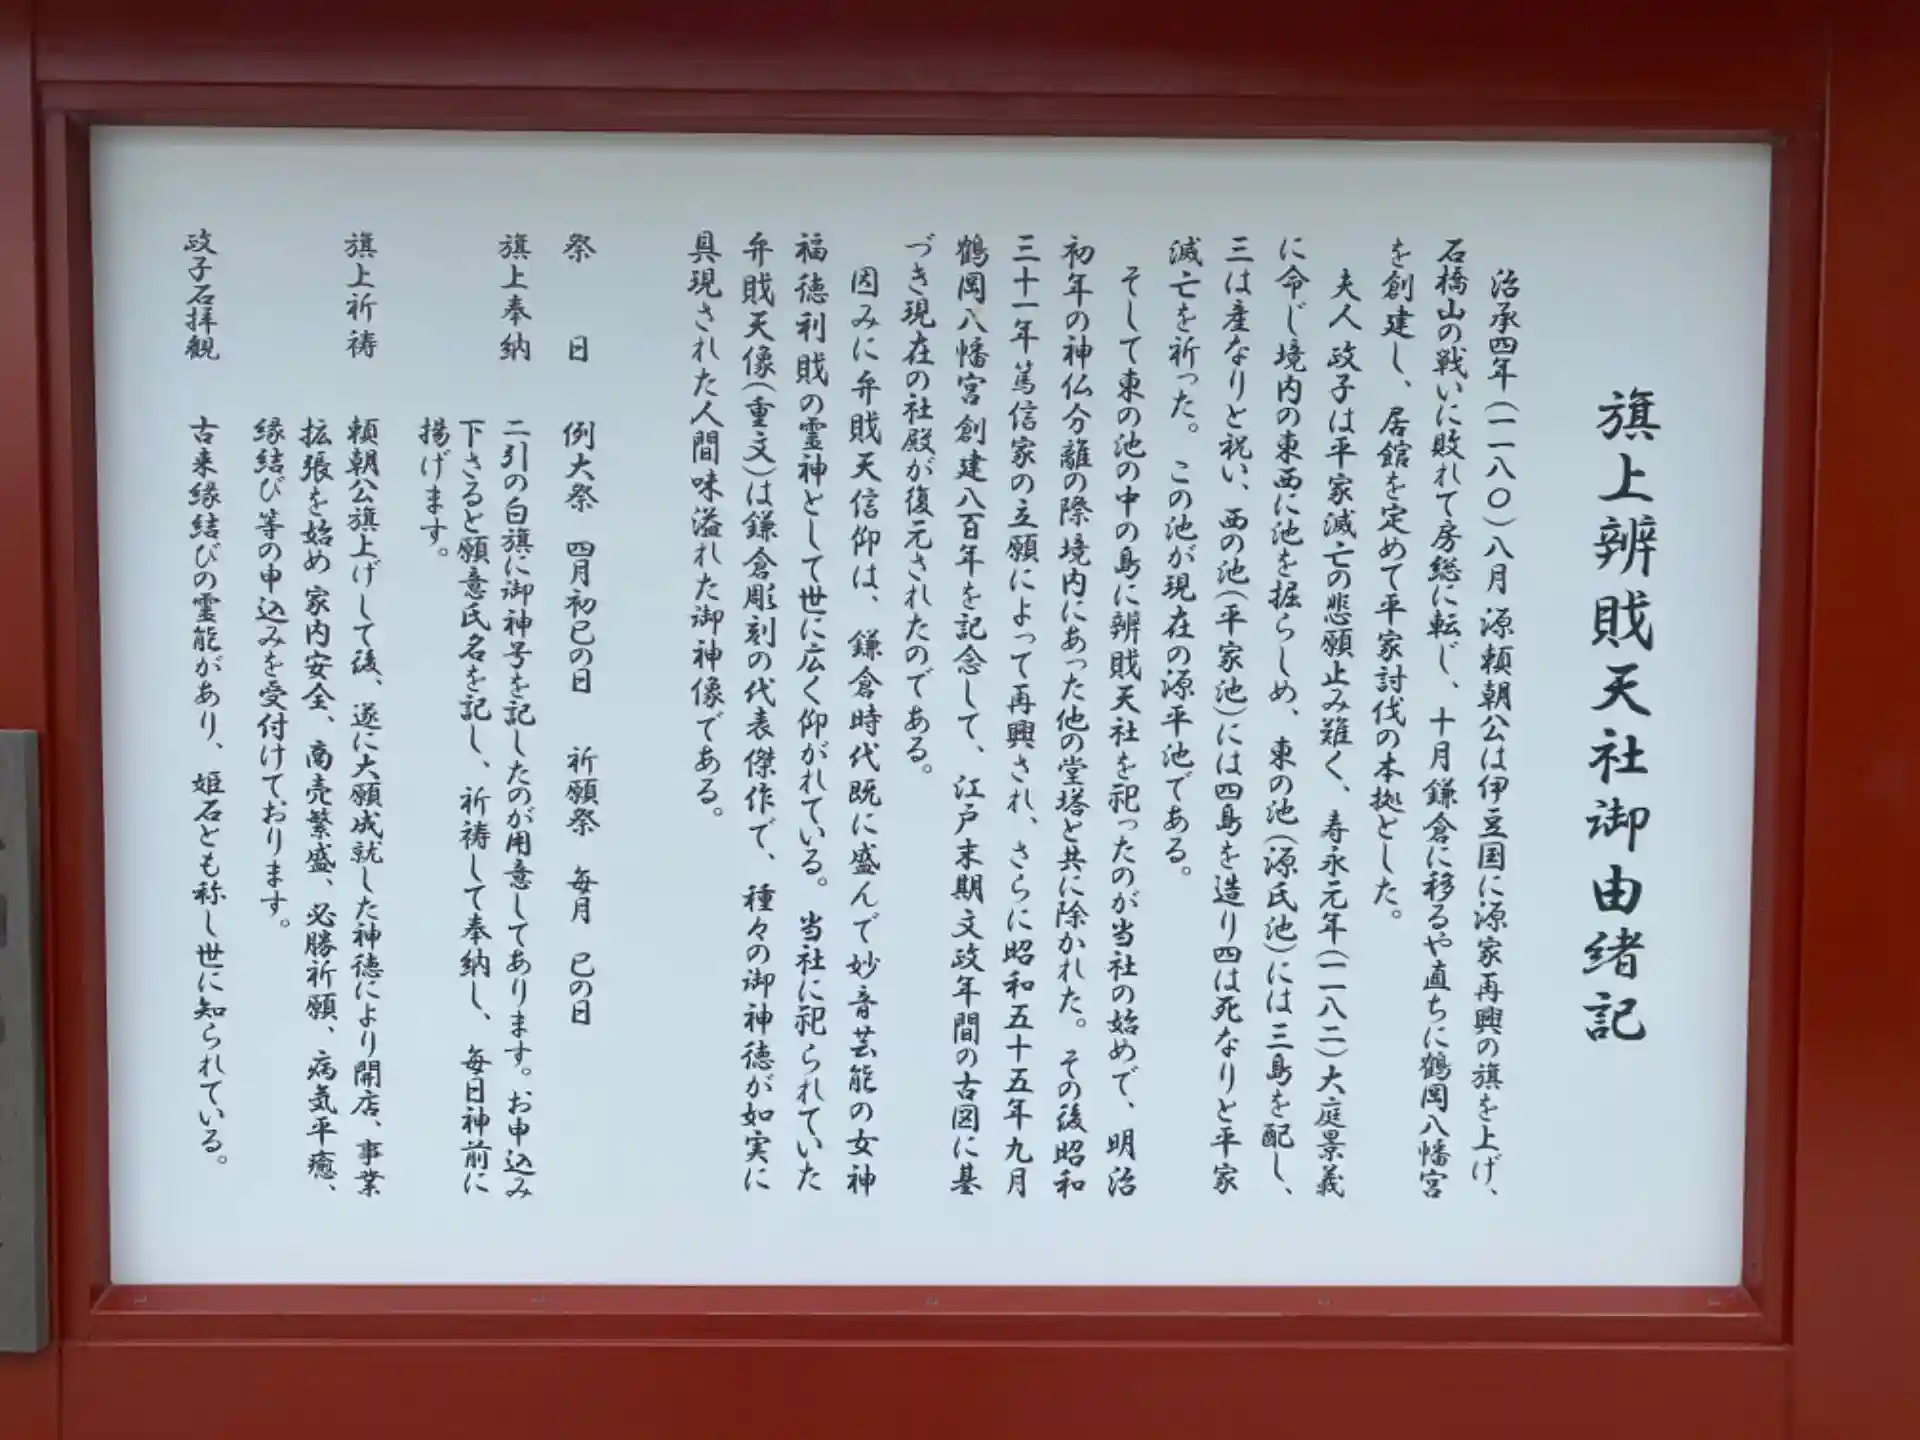 旗上辨財天社御由緒記
治承四年(一一八〇)八月 源頼朝公は伊豆国に源家再興の旗を上げ、
石橋山の戦いに敗れて房総に転じ、十月鎌倉に移るや直ちに鶴岡八幡宮
を創建し、居館を定めて平家討伐の本拠とした。
夫人 政子は平家滅亡の悲願止み難く、寿永元年(一一八二)大庭景義
に命じ境内の東西に池を掘らしめ、東の池(源氏池)には三島を配し、
三は産なりと祝い、西の池(平家池)には四島を造り四は死なりと平家
滅亡を祈った。この池が現在の源平池である。
そして東の池の中の島に辨財天社を祀ったのが当社の始めで、明治
初年の神仏分離の際境内にあった他の堂塔と共に除かれた。その後昭和
三十一年篤信家の立願によって再興され、さらに昭和五十五年九月
鶴岡八幡宮創建八百年を記念して、江戸末期文政年間の古図に基
づき現在の社殿が復元されたのである。
因みに弁財天信仰は、鎌倉時代既に盛んで妙音芸能の女神
福徳利財の霊神として世に広く仰がれている。当社に祀られていた
弁財天像(重文)は鎌倉彫刻の代表傑作で、種々の御神徳が如実に
具現された人間味溢れた御神像である。
祭 日 例大祭 四月初巳の日 祈願祭 毎月 巳の日
旗上奉納 二引の白旗に御神号を記したのが用意してあります。お申込み
下さると願意氏名を記し、祈祷して奉納し、毎日神前に
揚げます。
旗上祈祷 頼朝公旗上げして後、遂に大願成就した神徳により開店、事業
拡張を始め 家内安全、商売繁盛、必勝祈願、病気平癒、
縁結び等の申込みを受付けております。
政子石拝観 古来縁結びの霊能があり、姫石とも称し世に知られている。